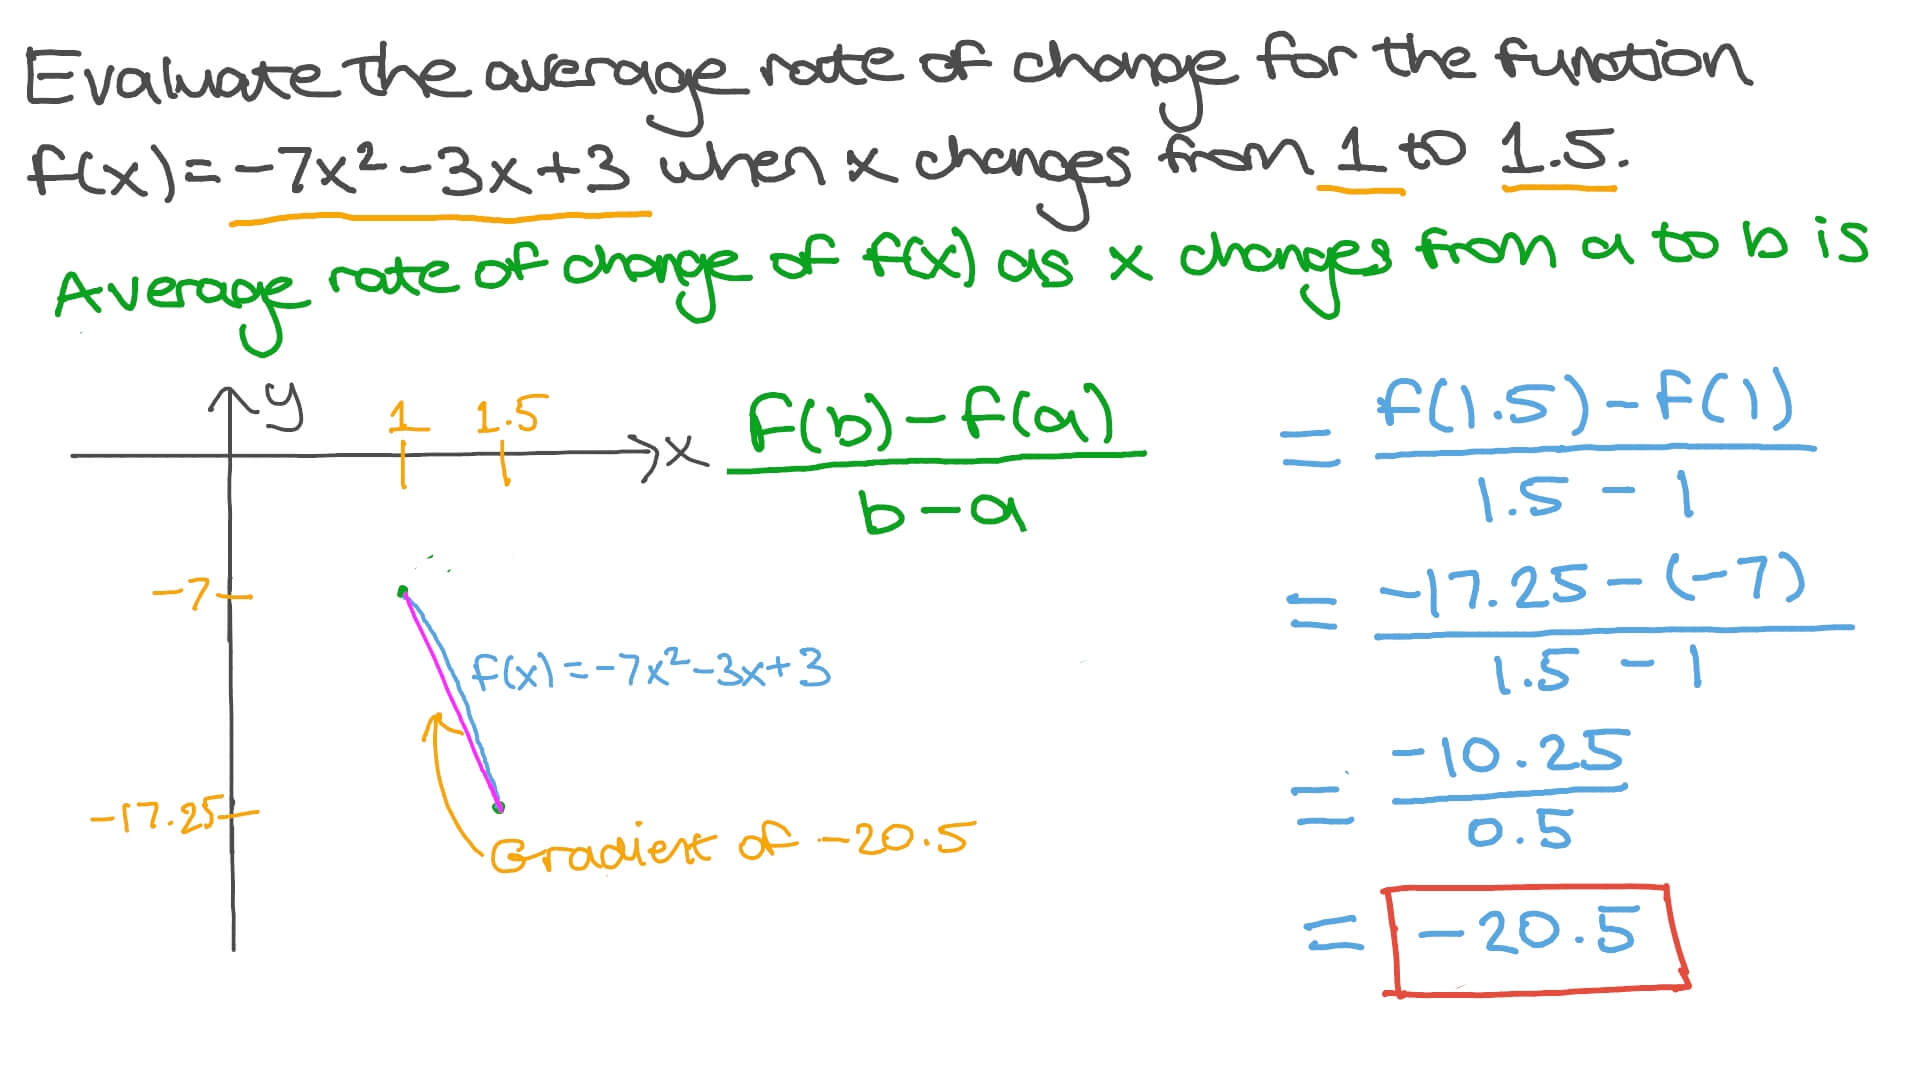 Evaluate the average rate of change for the function
f(x) = -7x² - 3x + 3 when x changes from 1 to 1.5.
Average rate of change of f(x) as x changes from a to b is
y
1
1.5
x
-7
-17.25
f(x) = -7x² - 3x + 3
Gradient of -20.5
f(b) - f(a)
b - a
= f(1.5) - f(1)
1.5 - 1
= -17.25 - (-7)
1.5 - 1
= -10.25
0.5
= -20.5